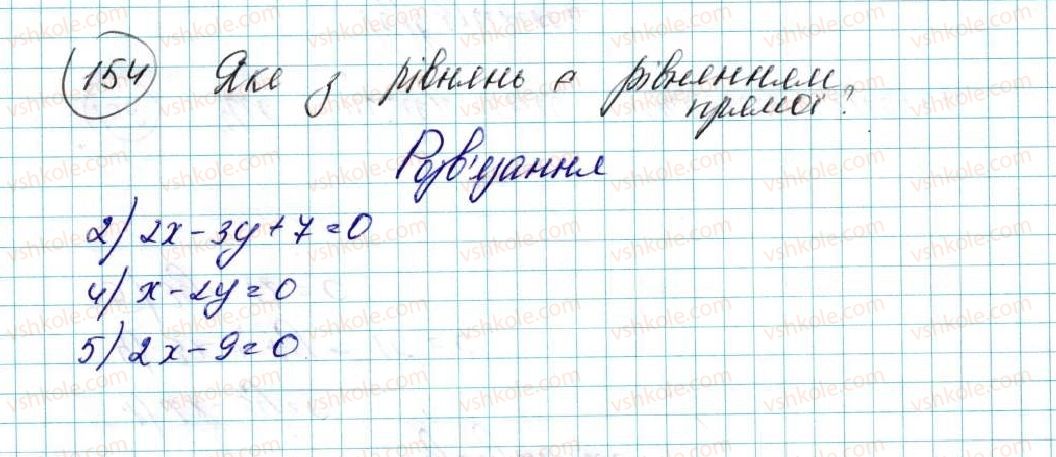 154 Яке з рівнянь є рівнянням
прямої?
Розв'язання
2) 2x - 3y + 7 = 0
4) x - 2y = 0
5) 2x - 9 = 0